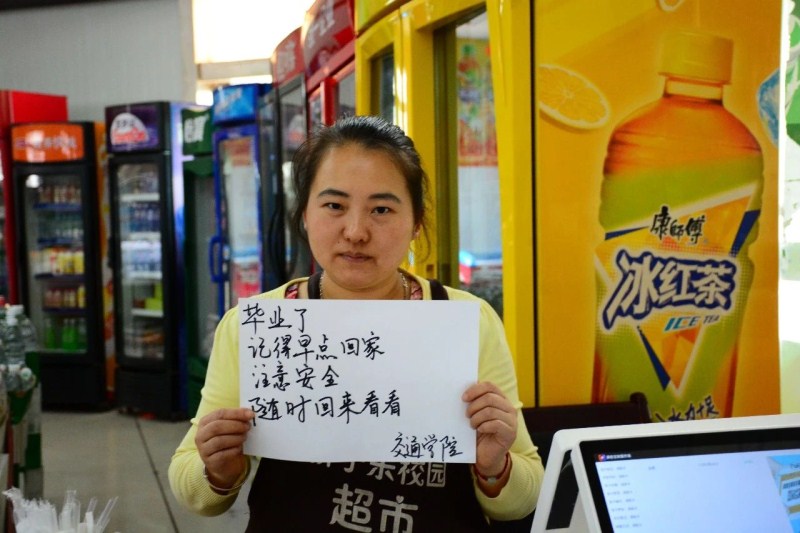 毕业了
记得早点回家
注意安全
随时回来看看
交通学院
康师傅
冰红茶
ICE TEA
校园
超市